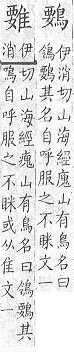 䳩
伊消切山海經廆山有鳥名曰
鴒䳩其名自呼服之不眯文一
伊切山海經廆山有鳥名曰鴒䳩其
消鳴自呼服之不眯或从隹文一